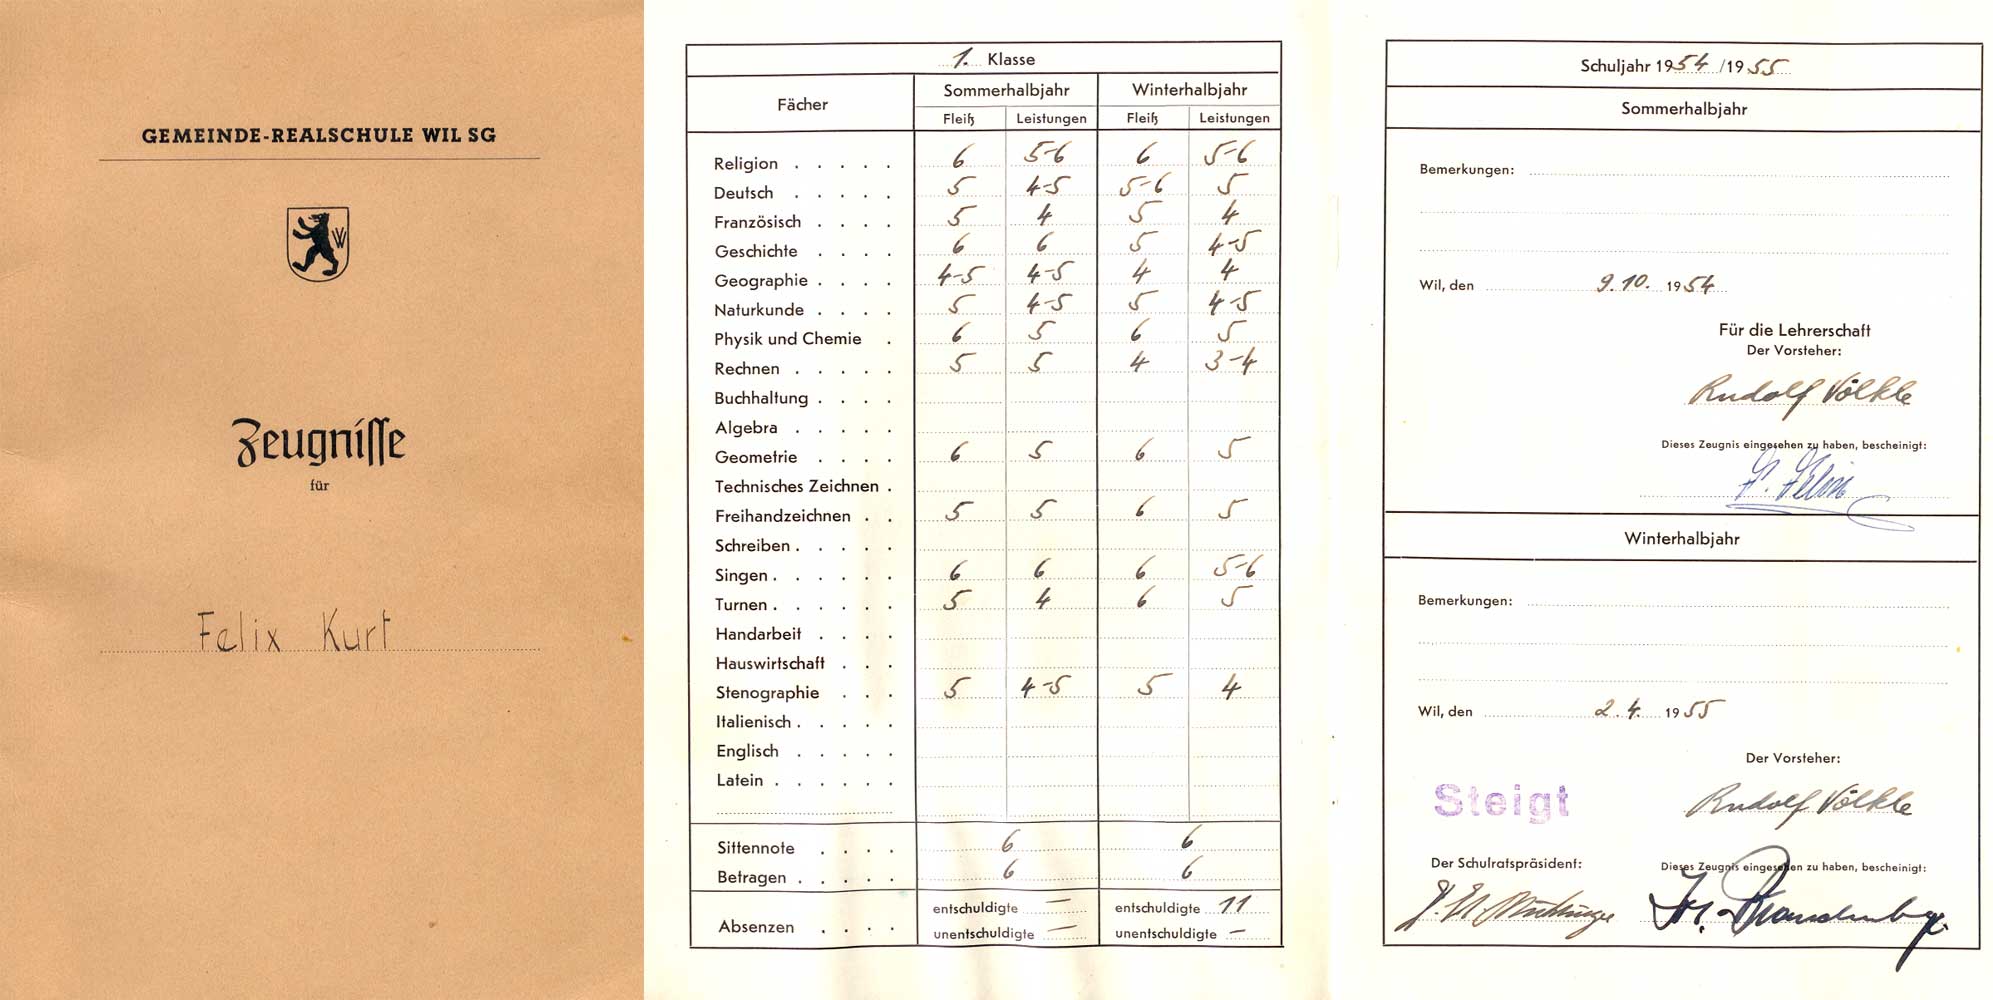 GEMEINDE-REALSCHULE WIL SG
Zeugnisse
für
Felix Kurt
1. Klasse
Fächer Sommerhalbjahr Winterhalbjahr
Fleiß Leistungen Fleiß Leistungen
Religion . . . . . 6 5-6 6 5-6
Deutsch . . . . . 5 4-5 5-6 5
Französisch . . . . 5 4 5 4
Geschichte . . . . 6 6 5 4-5
Geographie . . . . 4-5 4-5 4 4
Naturkunde . . . . 5 4-5 5 4-5
Physik und Chemie . 6 5 6 5
Rechnen . . . . . 5 5 4 3-4
Buchhaltung . . . .
Algebra . . . . .
Geometrie . . . . 6 5 6 5
Technisches Zeichnen .
Freihandzeichnen . . 5 5 6 5
Schreiben . . . . .
Singen . . . . . . 6 6 6 5-6
Turnen . . . . . . 5 4 6 5
Handarbeit . . . .
Hauswirtschaft . . .
Stenographie . . . 5 4-5 5 4
Italienisch . . . . .
Englisch . . . . .
Latein . . . . . .
Sittennote . . . . 6 6
Betragen . . . . . 6 6
Absenzen . . . .
entschuldigte – entschuldigte 11
unentschuldigte – unentschuldigte –
Schuljahr 1954/1955
Sommerhalbjahr
Bemerkungen:
Wil, den 9.10. 1954
Für die Lehrerschaft
Der Vorsteher:
Rudolf Völkle
Dieses Zeugnis eingesehen zu haben, bescheinigt:
Winterhalbjahr
Bemerkungen:
Wil, den 2.4. 1955
Der Vorsteher:
Steigt
Rudolf Völkle
Der Schulratspräsident:
Dieses Zeugnis eingesehen zu haben, bescheinigt: